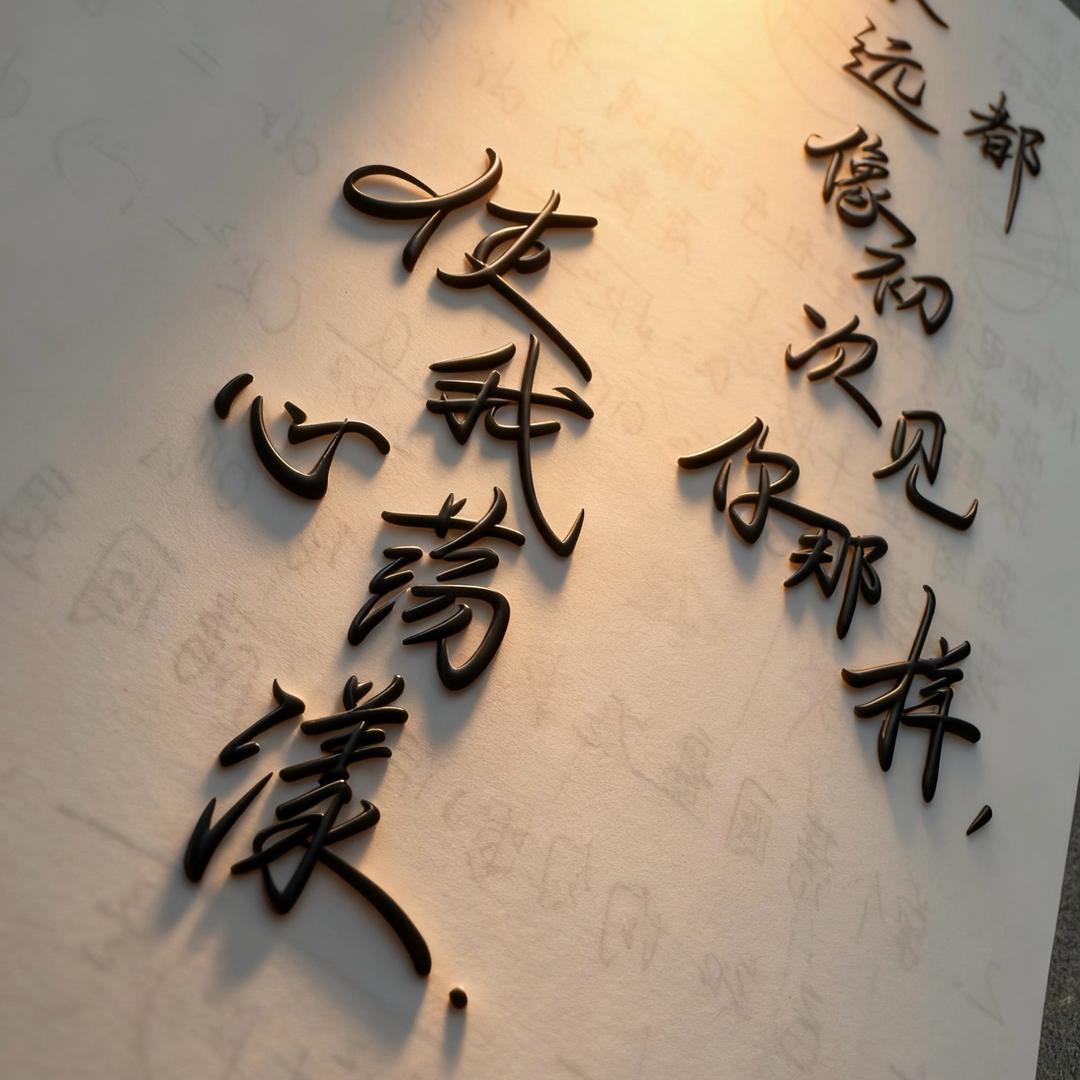 远都像初次见你那样，
使我心荡漾.